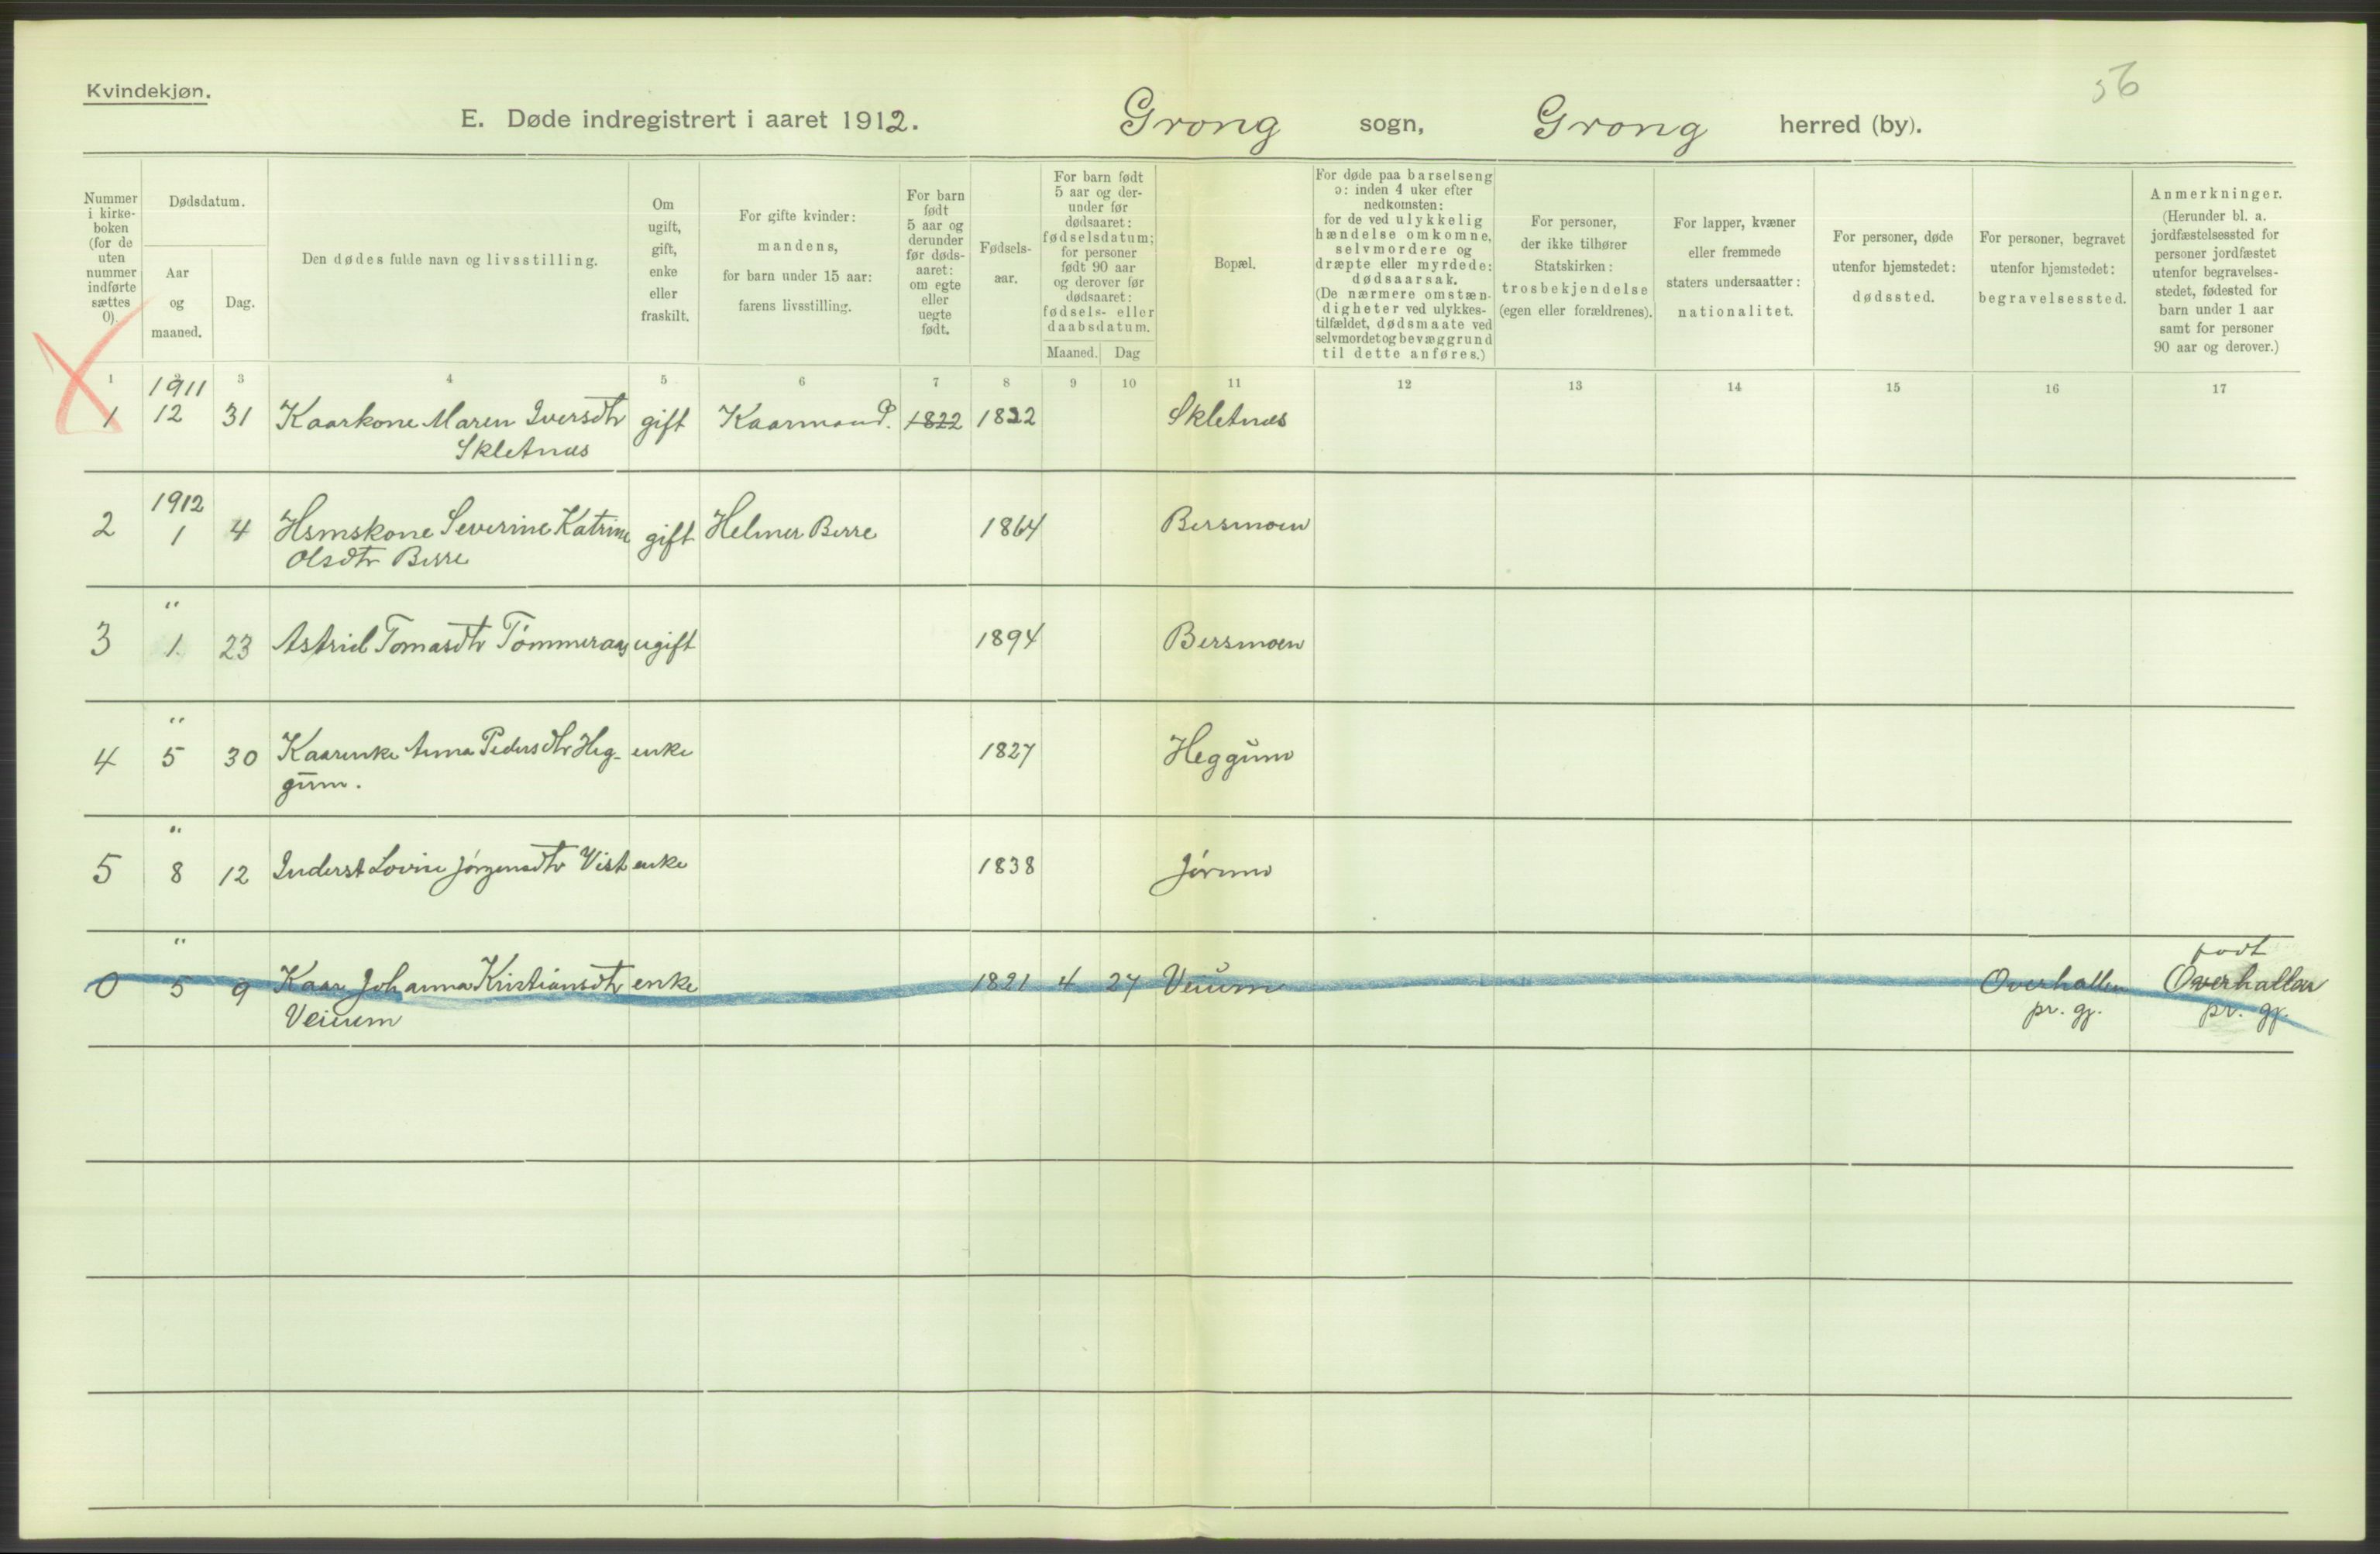 Kvindekjøn.
56
E. Døde indregistrert i aaret 1912. Grong sogn, Grong herred (by).
Nummer i kirke-boken (for de uten nummer indførte sættes 0).
Dødsdatum.
Aar og maaned.
Dag.
Den dødes fulde navn og livsstilling.
Om ugift, gift, enke eller fraskilt.
For gifte kvinder: mandens, for barn under 15 aar: farens livsstilling.
For barn født 5 aar og derunder før døds-aaret: om egte eller uegte født.
Fødsels-aar.
For barn født 5 aar og der-under før dødsaaret: fødselsdatum; for personer født 90 aar og derover før dødsaaret: fødsels- eller daabsdatum.
Maaned. Dag
Bopæl.
For døde paa barselseng ɔ: inden 4 uker efter nedkomsten: for de ved ulykkelig hændelse omkomne, selvmordere og dræpte eller myrdede: dødsaarsak. (De nærmere omstæn-digheter ved ulykkes-tilfældet, dødsmaate ved selvmordet og bevæggrund til dette anføres.)
For personer, der ikke tilhører Statskirken: trosbekjendelse (egen eller forældrenes).
For lapper, kvæner eller fremmede staters undersaatter: nationalitet.
For personer, døde utenfor hjemstedet: dødssted.
For personer, begravet utenfor hjemstedet: begravelsessted.
Anmerkninger. (Herunder bl. a. jordfæstelsessted for personer jordfæstet utenfor begravelses-stedet, fødested for barn under 1 aar samt for personer 90 aar og derover.)
1 2 3 4 5 6 7 8 9 10 11 12 13 14 15 16 17
1911
1 12 31 Kaarkone Maren Iversdtr gift Kaarmand. 1822 1822 Skletnæs
Skletnæs
1912
2 1 4 Hsmskone Severine Katrine gift Helmer Berre 1864 Bersmoen
Olsdtr Berre
"
3 1 23 Astrid Tomasdtr Tømmeraas ugift 1894 Bersmoen
"
4 5 30 Kaarenke Anna Pedersdtr Heg- enke 1827 Heggum
gum.
"
5 8 12 Inderst Lovise Jørgensdtr Vist enke 1838 Jørum
"
født
0 5 9 Kaar Johanna Kristiansdtr enke 1821 4 27 Veium Overhallen Overhallen
Veium pr. gj. pr. gj.